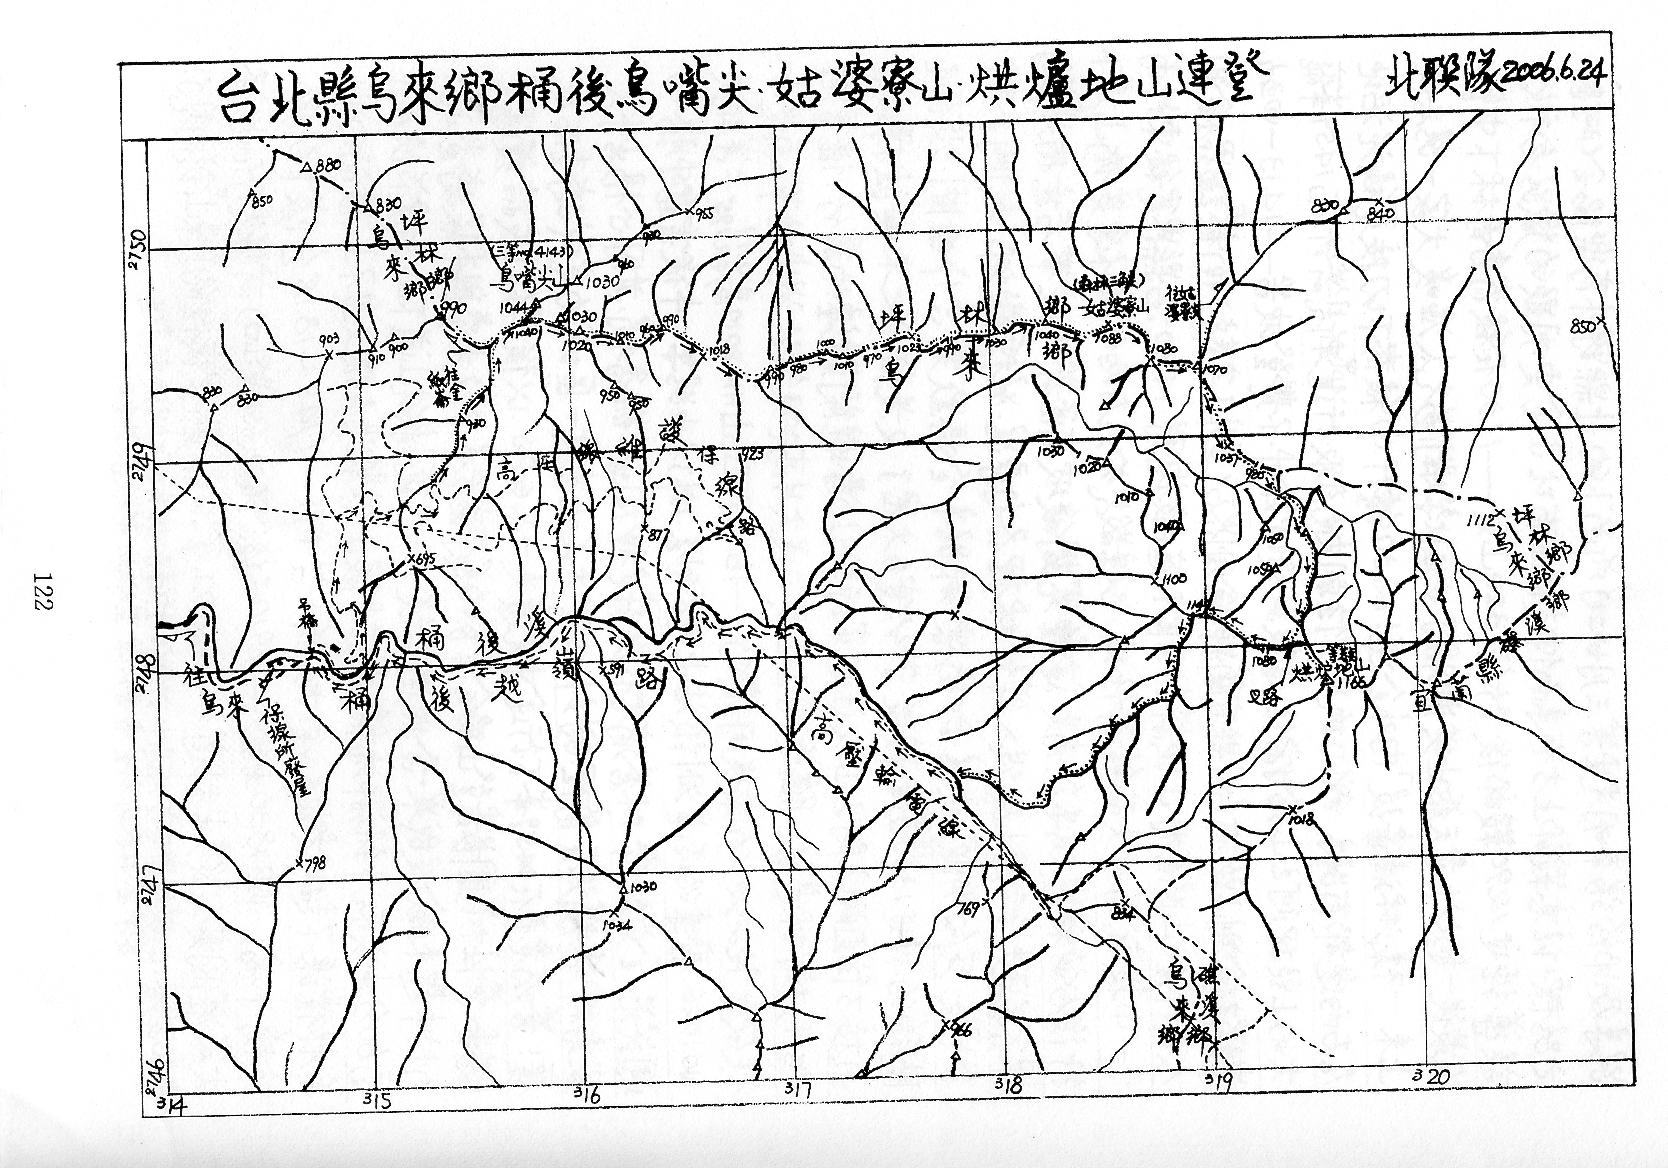 台北縣烏來鄉桶後烏嘴尖·姑婆寮山·烘爐地山連登
北聯隊2006.6.24
880
850
830
坪林鄉
烏來鄉
955
930
960
830
840
2750
(三等no4143)
烏嘴尖山
1030
1044
990
1030
1040
1020
1010
960
990
1018
(森林三角點)
姑婆寮山
往姑婆寮
坪林鄉
烏來鄉
990
980
1000
1010
970
1023
990
1030
1040
1088
1080
1070
850
903
910
900
往金瓜寮
830
830
950
950
930
2749
高壓線維護保線路
923
1030
1020
1010
1037
985
1040
1050
1050
1112
坪林鄉
烏來鄉
871
695
1100
1140
吊橋
桶後溪
2748
往烏來
保線所廢屋
桶後越嶺路
591
1080
烘爐地山
1166
叉路
宜蘭縣礁溪鄉
高壓輸電線
1018
798
2747
1030
1034
769
834
烏來鄉
礁溪鄉
966
2746
314
315
316
317
318
319
320
122